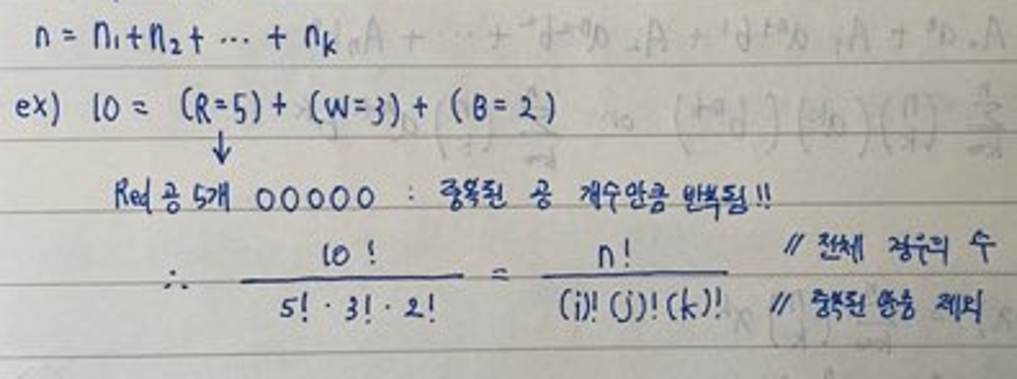 n = n₁+n₂+ ⋯ + nₖ
ex) 10 = (R=5) + (W=3) + (B=2)
↓
Red 공 5개 00000 : 중복된 공 개수만큼 반복됨!!
∴ 10! / 5! · 3! · 2! = n! / (i)! (j)! (k)!
// 전체 경우의 수
// 중복된 만큼 제외